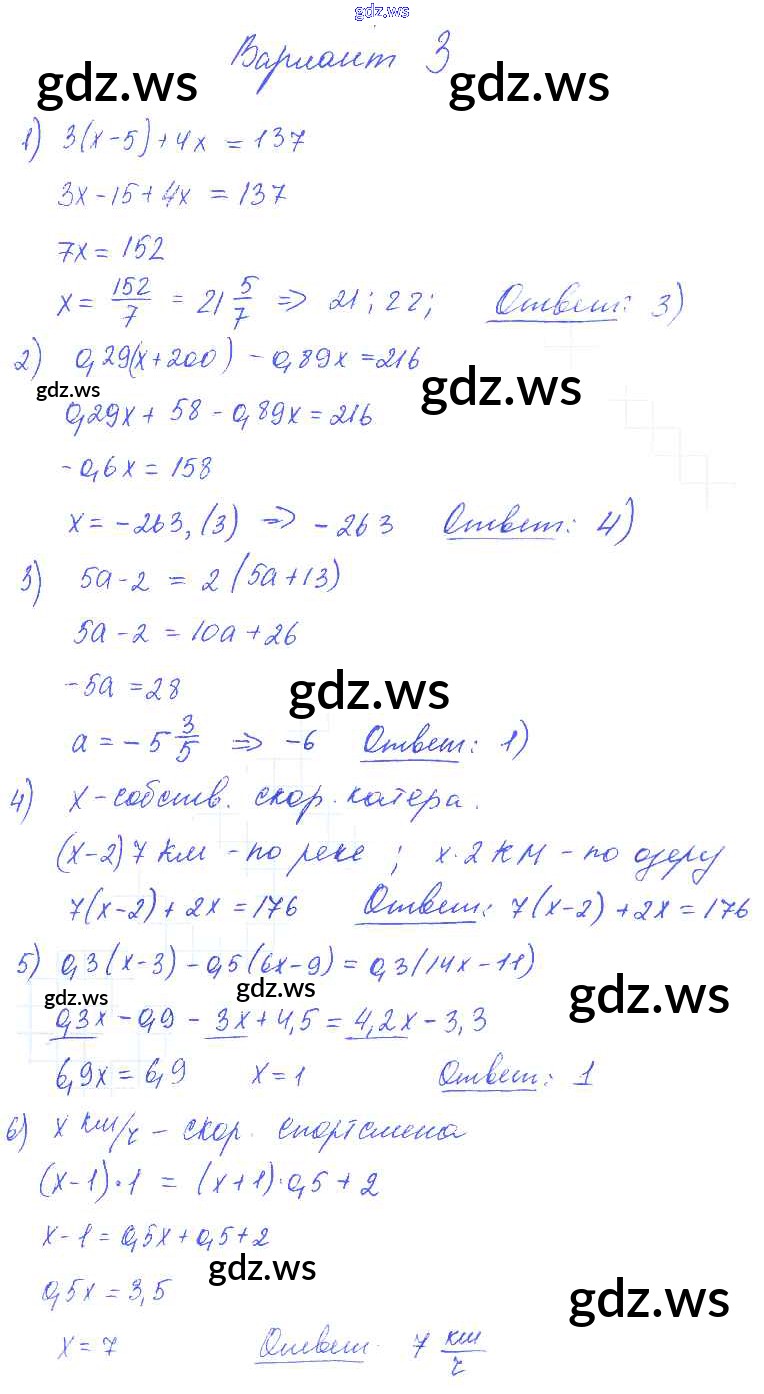 gdz.ws
Вариант 3
gdz.ws gdz.ws
1) 3(x-5)+4x = 137
3x-15+4x = 137
7x = 152
x = 152/7 = 21 5/7 => 21; 22; Ответ: 3)
2) 0,29(x+200) - 0,89x = 216
gdz.ws gdz.ws
0,29x + 58 - 0,89x = 216
-0,6x = 158
x = -263,(3) => -263 Ответ: 4)
3) 5a-2 = 2(5a+13)
5a-2 = 10a+26
-5a = 28
gdz.ws
a = -5 3/5 => -6 Ответ: 1)
4) x - собств. скор. катера.
(x-2)7 км - по реке ; x·2 км - по озеру
7(x-2)+2x = 176 Ответ: 7(x-2)+2x = 176
5) 0,3(x-3) - 0,5(6x-9) = 0,3(14x-11)
gdz.ws gdz.ws gdz.ws
0,3x - 0,9 - 3x + 4,5 = 4,2x - 3,3
6,9x = 6,9 x = 1 Ответ: 1
6) x км/ч - скор. спортсмена
(x-1)·1 = (x+1)·0,5 + 2
x-1 = 0,5x + 0,5 + 2
gdz.ws gdz.ws
0,5x = 3,5
x = 7 Ответ. 7 км/ч